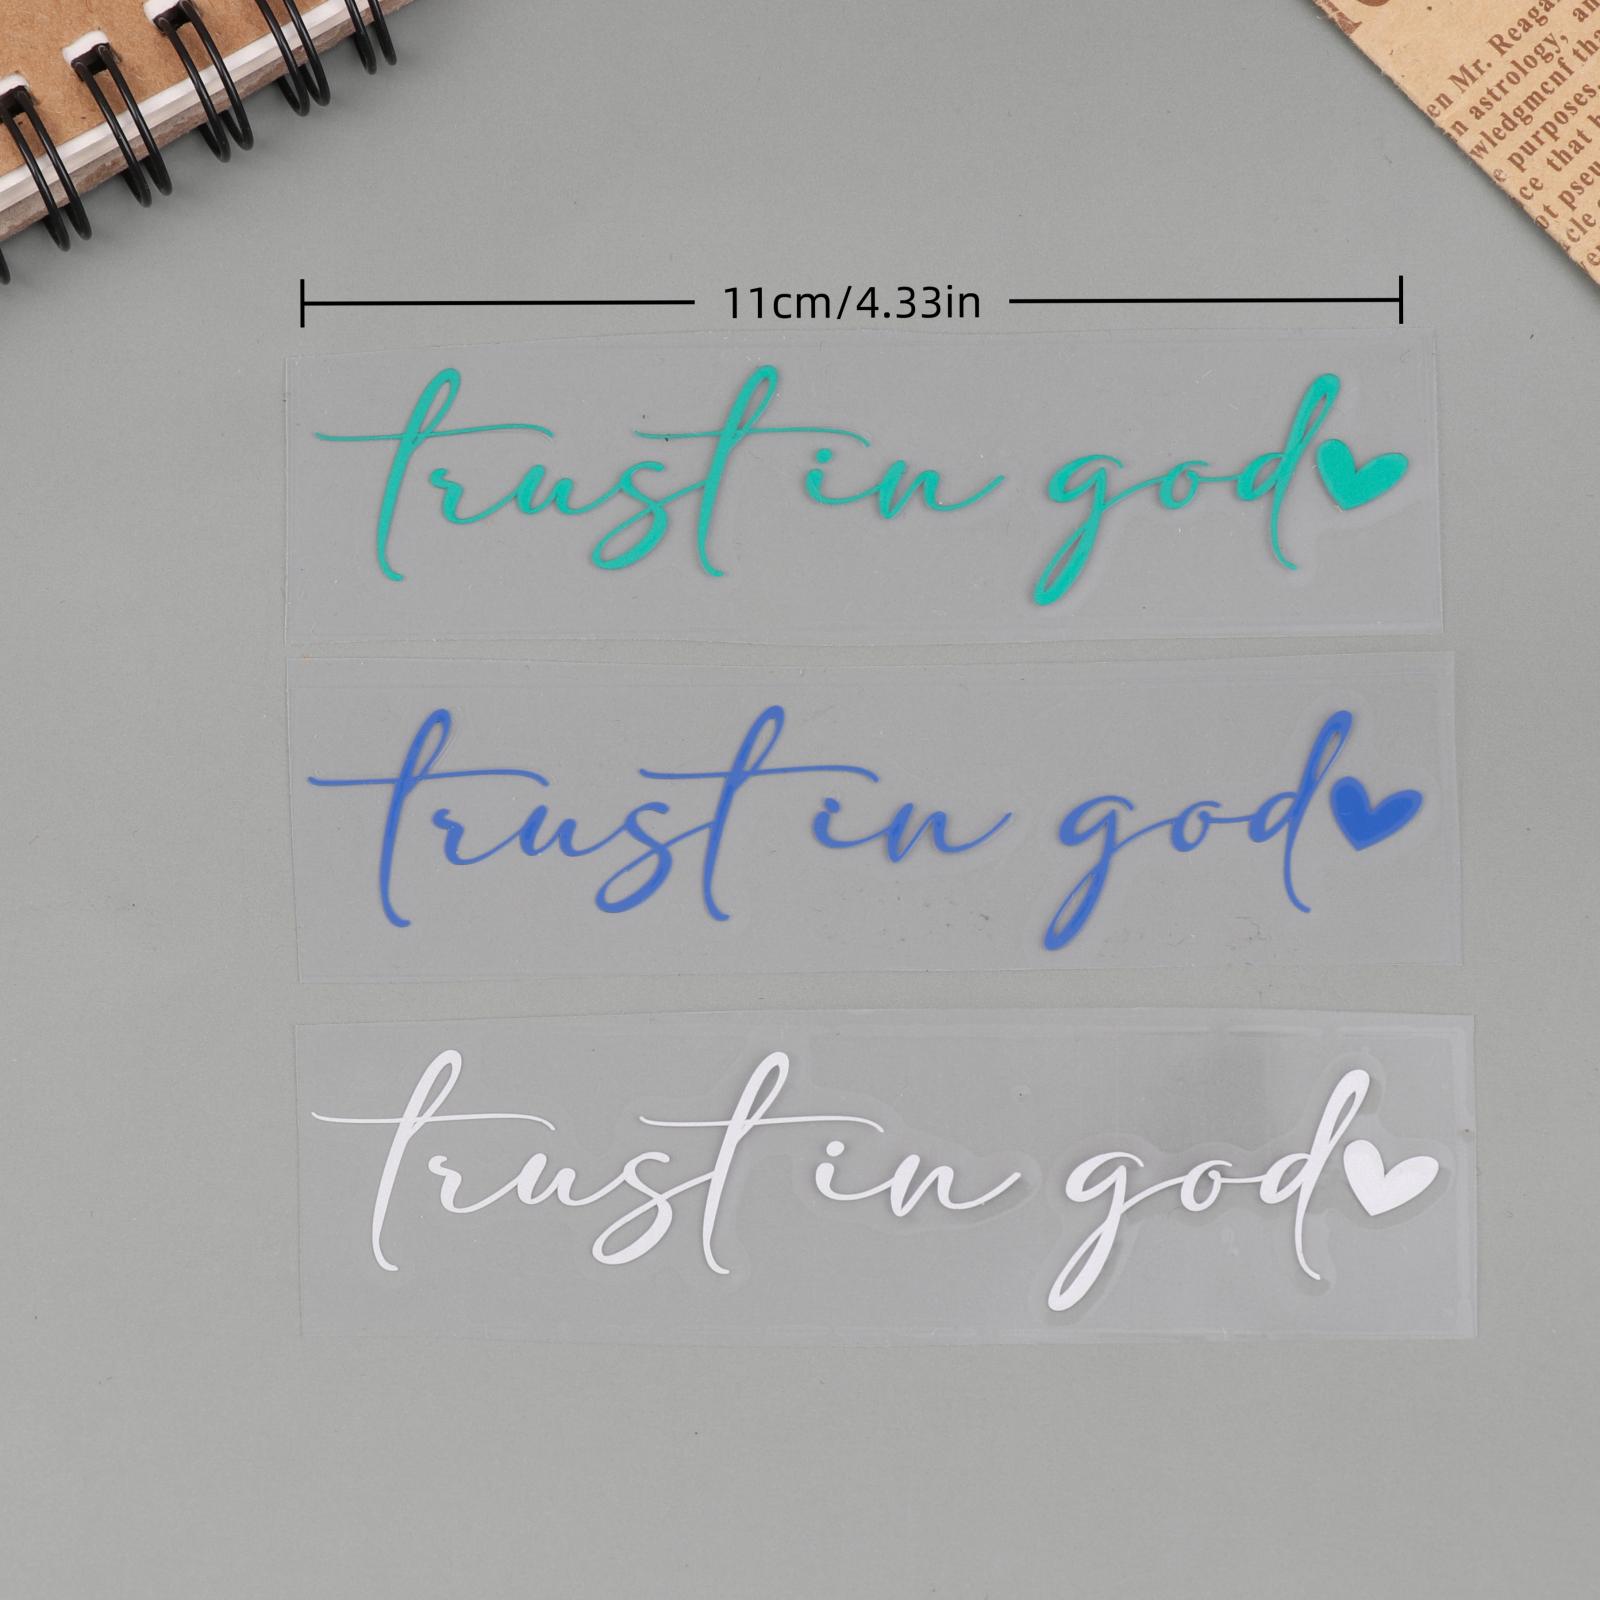 en Mr. Reaga
n astrology, an
wledgmcnf tha
e purposes.
ce that
ot pseu
cle
11cm/4.33in
trust in god
trust in god
trust in god